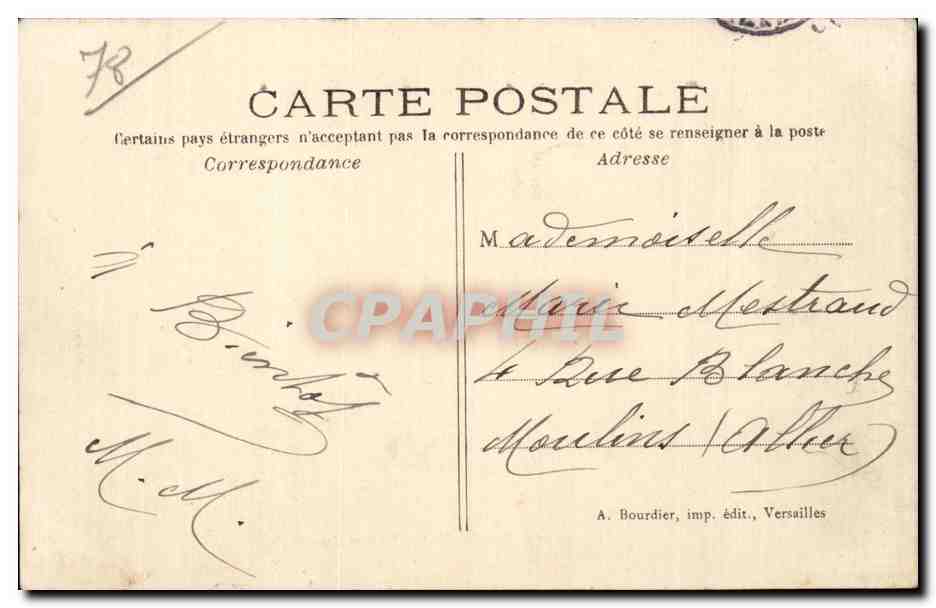 78
CARTE POSTALE
Certains pays étrangers n'acceptant pas la correspondance de ce côté se renseigner à la poste
Correspondance
Adresse
à
Bientôt
M. M.
Mademoiselle
Marie Mestraud
4 Rue Blanche
Moulins (Allier)
CPAPHIL
A. Bourdier, imp. édit., Versailles